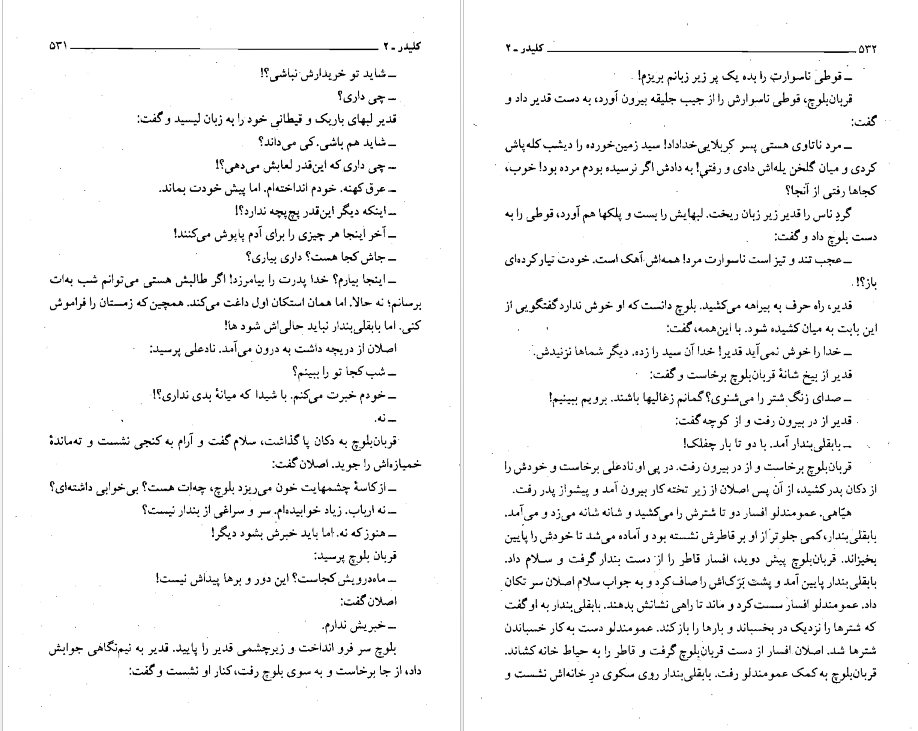 کلیدر ـ ۲ ۵۳۱
ـ شاید تو خریدارش نباشی؟!
ـ چی داری؟
قدیر لبهای باریک و قیطانی خود را به زبان لیسید و گفت:
ـ شاید هم باشی. کی می‌داند؟
ـ چی داری که این‌قدر لعابش می‌دهی؟!
ـ عرق کهنه. خودم انداخته‌ام. اما پیش خودت بماند.
ـ اینکه دیگر این‌قدر پچ‌پچه ندارد؟!
ـ آخر اینجا هر چیزی را برای آدم پاپوش می‌کنند!
ـ جاش کجا هست؟ داری بیاری؟
ـ اینجا بیارم؟ خدا پدرت را بیامرزد! اگر طالبش هستی می‌توانم شب به‌ات
برسانم؛ نه حالا. اما همان استکان اول داغت می‌کند. همچین که زمستان را فراموش
کنی. اما بابقلی‌بندار نباید حالی‌اش شود ها!
اصلان از دریچه داشت به درون می‌آمد. نادعلی پرسید:
ـ شب کجا تو را ببینم؟
ـ خودم خبرت می‌کنم. با شیدا که میانهٔ بدی نداری؟!
ـ نه.
قربان‌بلوچ به دکان پا گذاشت، سلام گفت و آرام به کنجی نشست و ته‌ماندهٔ
خمیازه‌اش را جوید. اصلان گفت:
ـ از کاسهٔ چشمهایت خون می‌ریزد بلوچ، چه‌ات هست؟ بی‌خوابی داشته‌ای؟
ـ نه ارباب. زیاد خوابیده‌ام. سر و سراغی از بندار نیست؟
ـ هنوز که نه. اما باید خبرش بشود دیگر!
قربان بلوچ پرسید:
ـ ماه‌درویش کجاست؟ این دور و برها پیداش نیست!
اصلان گفت:
ـ خبریش ندارم.
بلوچ سر فرو انداخت و زیرچشمی قدیر را پایید. قدیر به نیم‌نگاهی جوابش
داد، از جا برخاست و به سوی بلوچ رفت، کنار او نشست و گفت:
۵۳۲ کلیدر ـ ۲
ـ قوطی ناسوارت را بده یک پر زیر زبانم بریزم!
قربان‌بلوچ، قوطی ناسوارش را از جیب جلیقه بیرون آورد، به دست قدیر داد و
گفت:
ـ مرد ناتاوی هستی پسر کربلایی‌خداداد! سید زمین‌خورده را دیشب کله‌پاش
کردی و میان گلخن یله‌اش دادی و رفتی! به دادش اگر نرسیده بودم مرده بود! خوب،
کجاها رفتی از آنجا؟
گردِ ناس را قدیر زیر زبان ریخت. لبهایش را بست و پلکها هم آورد، قوطی را به
دست بلوچ داد و گفت:
ـ عجب تند و تیز است ناسوارت مرد! همه‌اش آهک است. خودت تیار کرده‌ای
باز؟!
قدیر، راه حرف به بیراهه می‌کشید. بلوچ دانست که او خوش ندارد گفتگویی از
این بابت به میان کشیده شود. با این‌همه، گفت:
ـ خدا را خوش نمی‌آید قدیر! خدا آن سید را زده. دیگر شماها نزنیدش.
قدیر از بیخ شانهٔ قربان‌بلوچ برخاست و گفت:
ـ صدای زنگ شتر را می‌شنوی؟ گمانم زغالیها باشند. برویم ببینیم!
قدیر از در بیرون رفت و از کوچه گفت:
ـ بابقلی‌بندار آمد. با دو تا بار چفلک!
قربان‌بلوچ برخاست و از در بیرون رفت. در پی او نادعلی برخاست و خودش را
از دکان بدر کشید، از آن پس اصلان از زیر تخته کار بیرون آمد و پیشواز پدر رفت.
هیّاهی. عمومندلو افسار دو تا شترش را می‌کشید و شانه شانه می‌زد و می‌آمد.
بابقلی‌بندار، کمی جلوتر از او بر قاطرش نشسته بود و آماده می‌شد تا خودش را پایین
بخیزاند. قربان‌بلوچ پیش دوید، افسار قاطر را از دست بندار گرفت و سلام داد.
بابقلی‌بندار پایین آمد و پشت بَرَک‌اش را صاف کرد و به جواب سلام اصلان سر تکان
داد. عمومندلو افسار سست کرد و ماند تا راهی نشانش بدهند. بابقلی‌بندار به او گفت
که شترها را نزدیک در بخسباند و بارها را باز کند. عمومندلو دست به کار خسباندن
شترها شد. اصلان افسار از دست قربان‌بلوچ گرفت و قاطر را به حیاط خانه کشاند.
قربان‌بلوچ به کمک عمومندلو رفت. بابقلی‌بندار روی سکوی در خانه‌اش نشست و